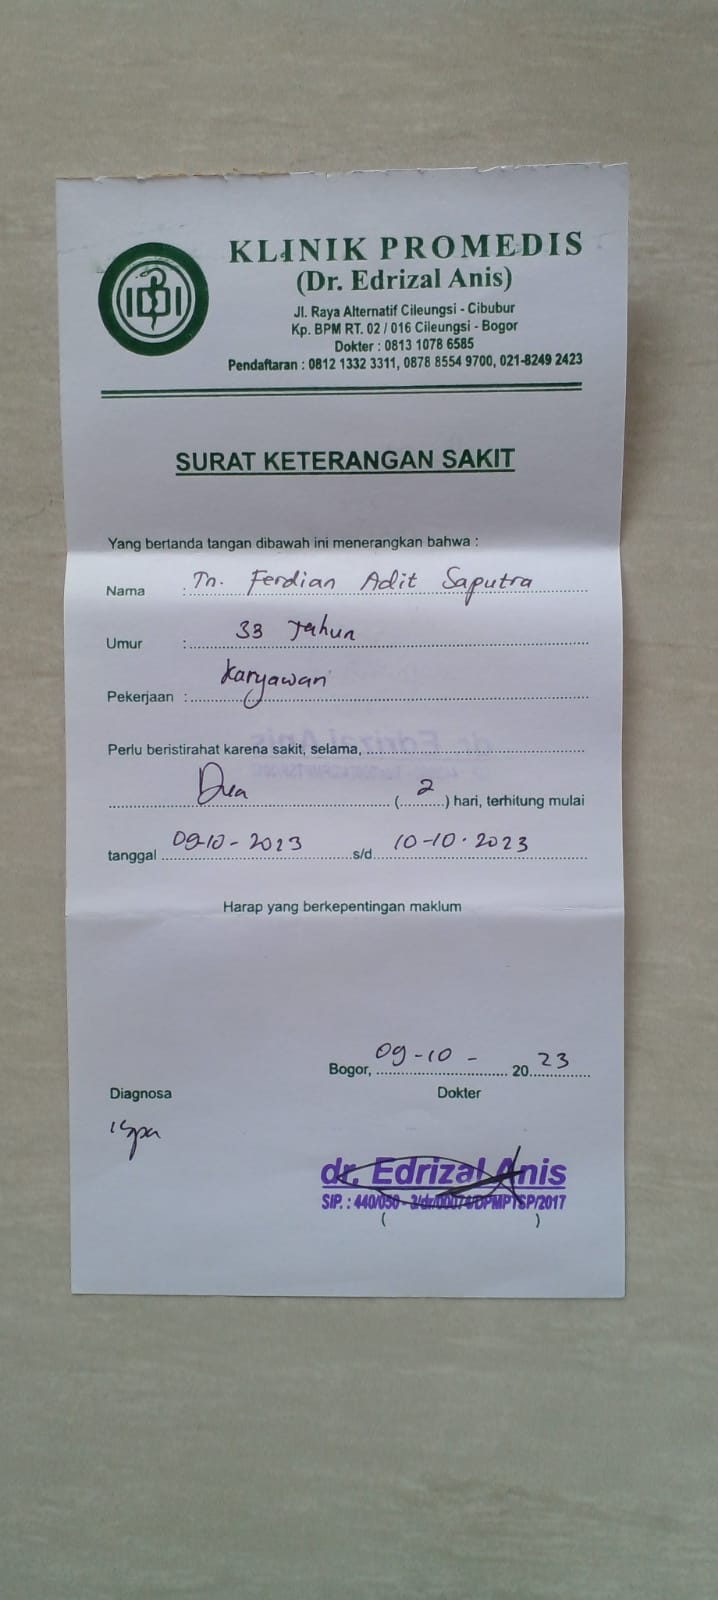 IDI
KLINIK PROMEDIS
(Dr. Edrizal Anis)
Jl. Raya Alternatif Cileungsi - Cibubur
Kp. BPM RT. 02 / 016 Cileungsi - Bogor
Dokter : 0813 1078 6585
Pendaftaran : 0812 1332 3311, 0878 8554 9700, 021-8249 2423
SURAT KETERANGAN SAKIT
Yang bertanda tangan dibawah ini menerangkan bahwa :
Nama : Tn. Ferdian Adit Saputra
Umur : 33 Tahun
Pekerjaan : Karyawan
Perlu beristirahat karena sakit, selama,
Dua (2) hari, terhitung mulai
tanggal 09-10-2023 s/d 10-10-2023
Harap yang berkepentingan maklum
Bogor, 09-10- 2023
Diagnosa Dokter
Ispa
dr. Edrizal Anis
SIP. : 440/050 - 3/dr/00074/DPMPTSP/2017
( )